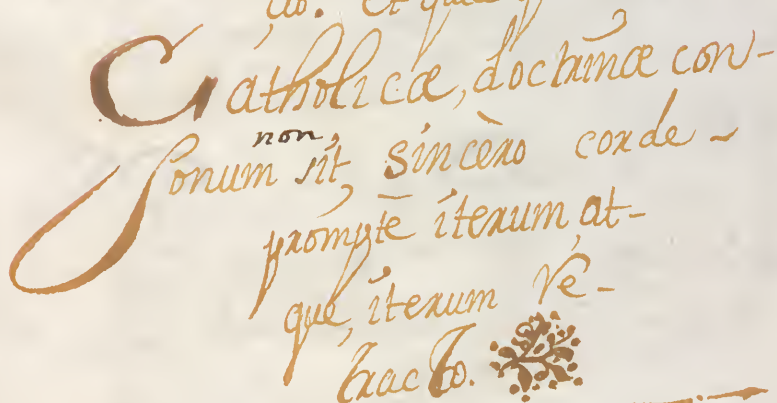 Catholicæ, doctrinæ con-
non
sonum sit, sincèro corde -
promptè iterum, at-
que, iterum Re-
tracto.